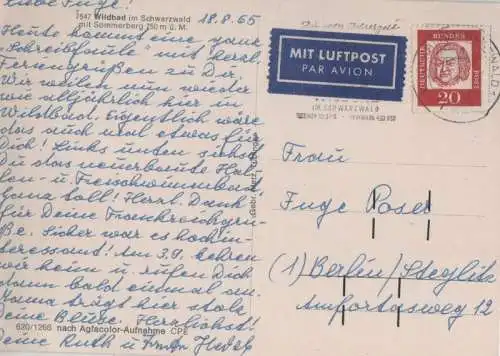 Liebe Inge!
7547 Wildbad im Schwarzwald
mit Sommerberg 750 m ü. M.
18.8.65
Heute kommt eine ganz
"Schreibfaule" mit herzl.
Feriengrüßen zu Dir.
Wir weilen nun wieder
wie alljährlich hier in
Wildbad. Eigentlich wäre
das auch mal etwas für
Dich! Links unten siehst
Du das neuerbaute Hal-
len- u. Freischwimmbad
Ganz toll! Herzl. Dank
für Deine Frankreichgrü-
ße. Sicher war es hochin-
teressant! Am 3.9. kehren
wir heim u. rufen Dich
dann bald einmal an.
Mama trägt hier stolz
Deine Bluse. Herzlichst!
Deine Ruth u.
620/1266 nach Agfacolor-Aufnahme CPE
Gebr. Metz, Tübingen
MIT LUFTPOST
PAR AVION
IM SCHWARZWALD
DEUTSCHE
BUNDES
POST
20
Frau
Inge Poser
(1) Berlin/Steglitz
Amfortasweg 12